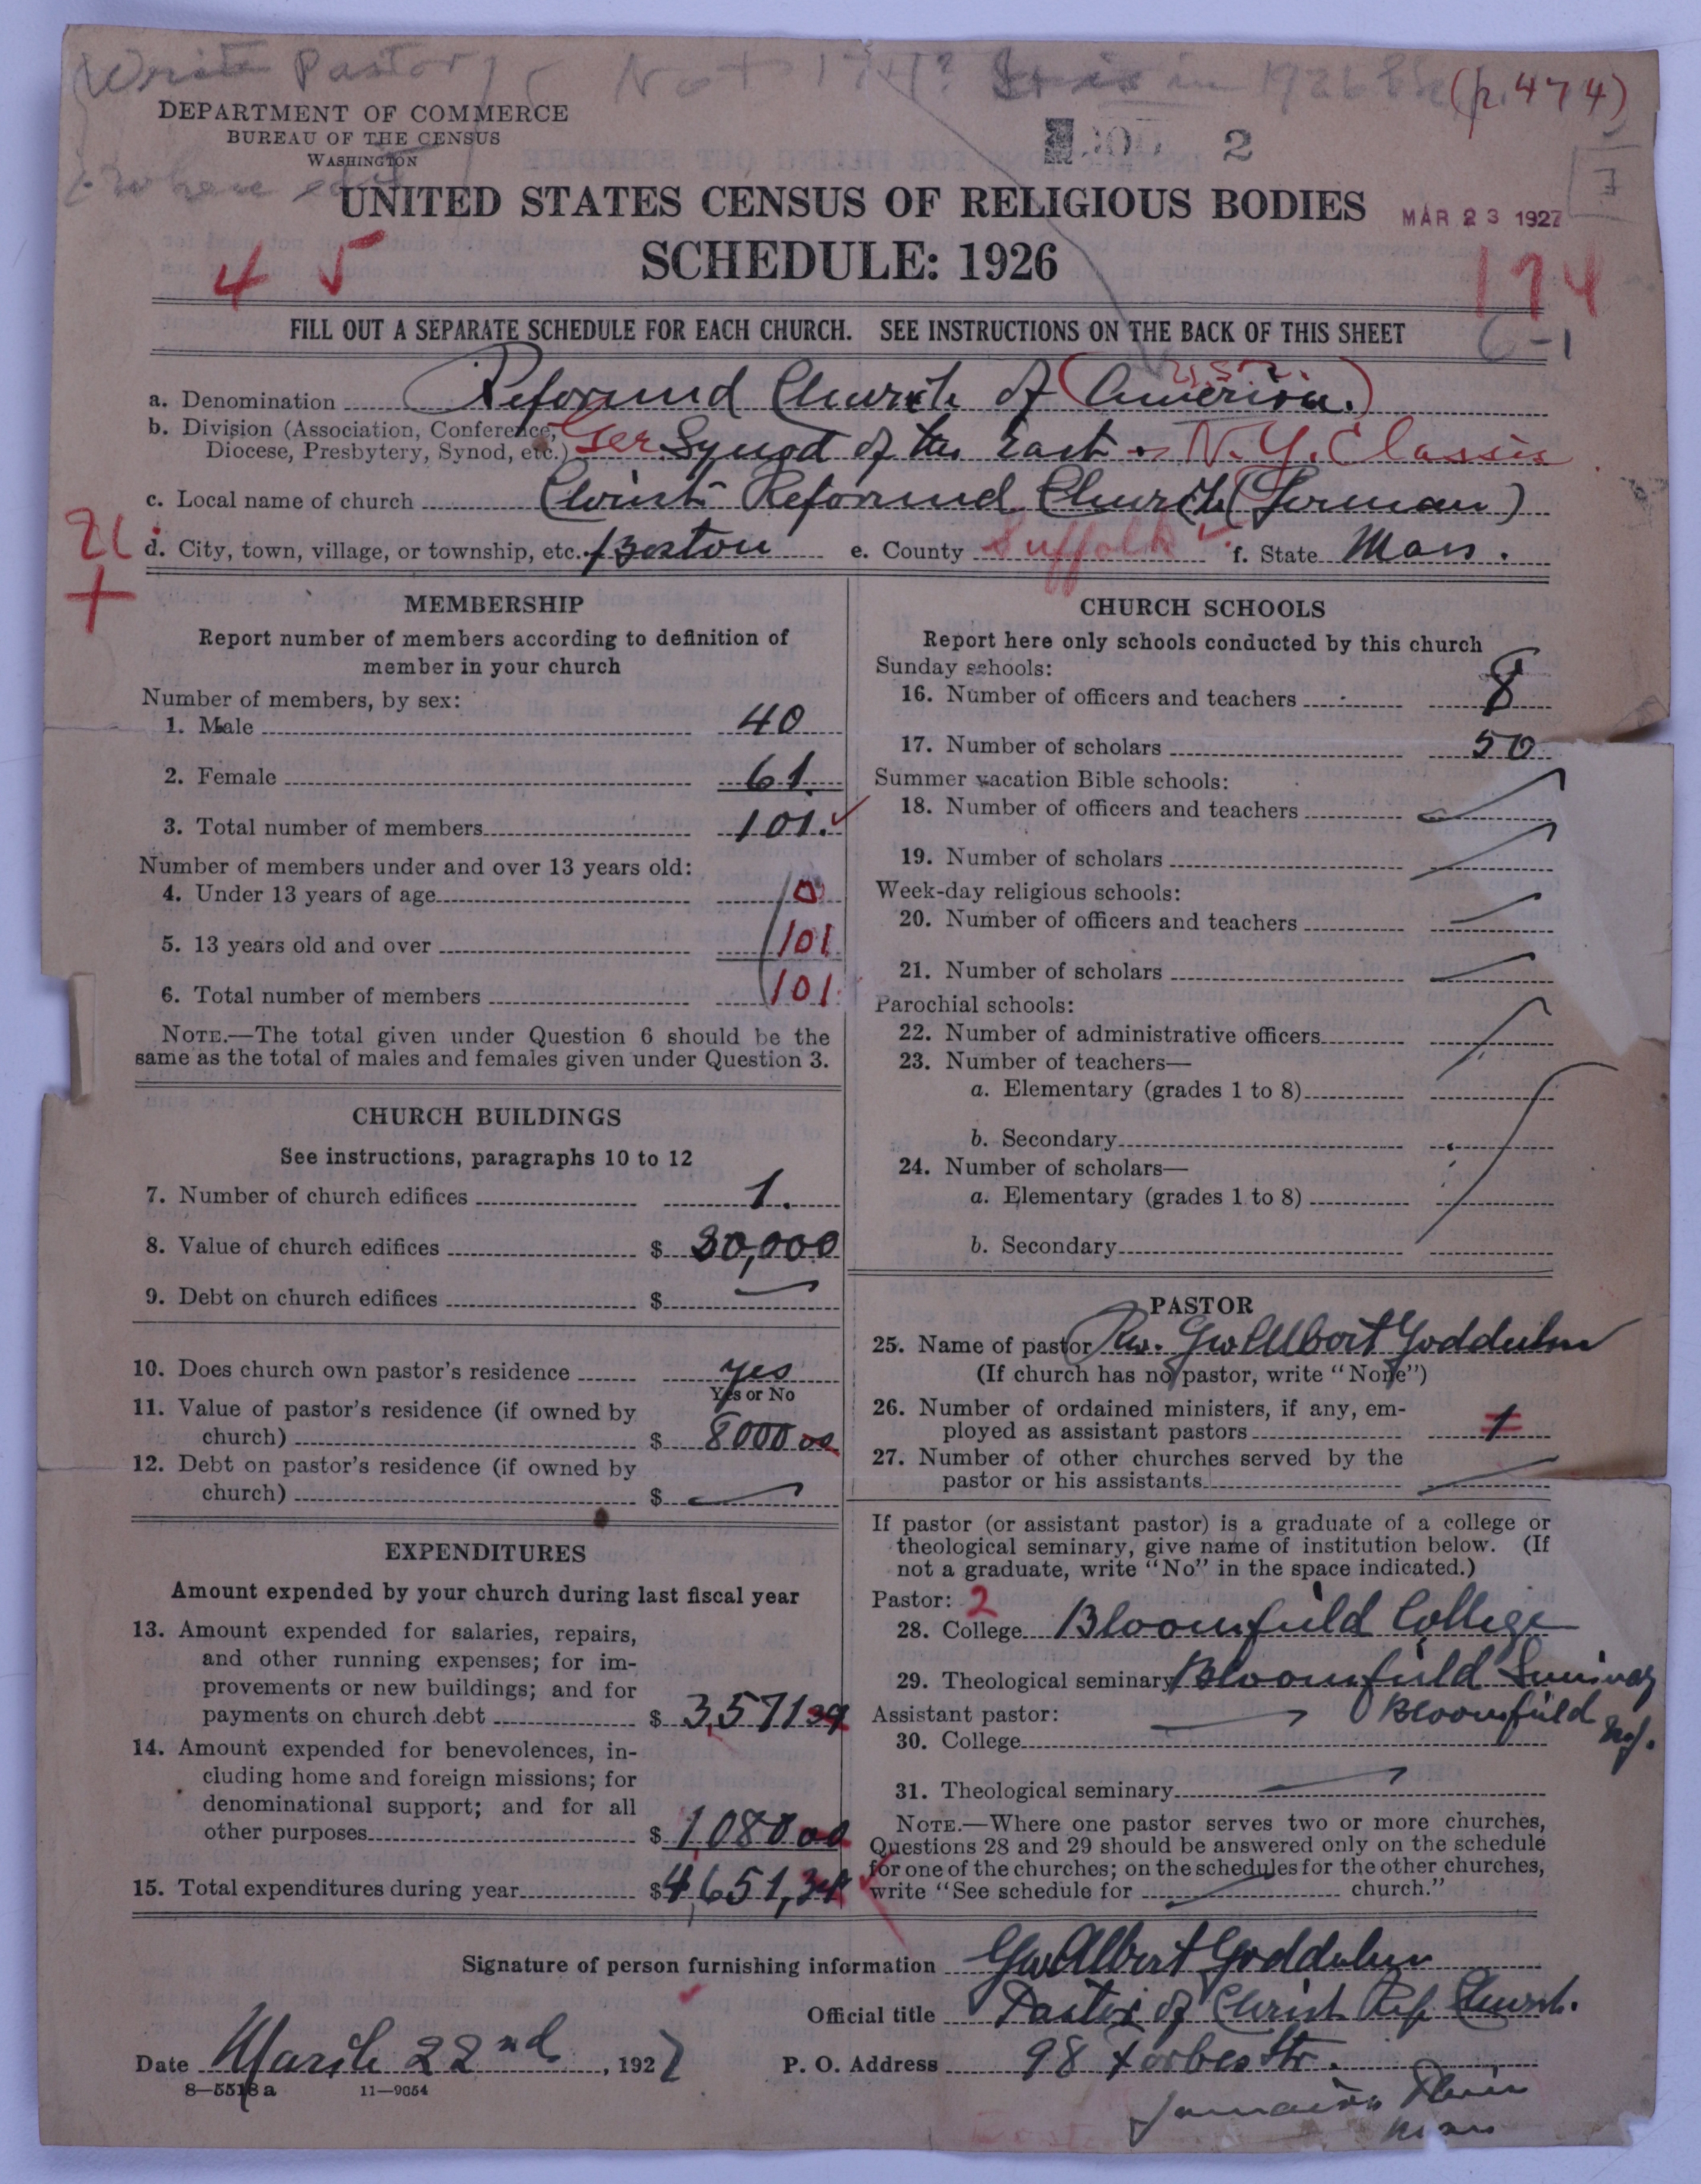 Write Pastor Not 174? It is in 1926 (p. 474)
DEPARTMENT OF COMMERCE
BUREAU OF THE CENSUS
WASHINGTON
2
UNITED STATES CENSUS OF RELIGIOUS BODIES
MAR 23 1927
SCHEDULE: 1926
4 5
174
FILL OUT A SEPARATE SCHEDULE FOR EACH CHURCH. SEE INSTRUCTIONS ON THE BACK OF THIS SHEET
6-1
a. Denomination Reformed Church of (America.)
b. Division (Association, Conference, Diocese, Presbytery, Synod, etc.) Ger Synod of the East N.Y. Classis
c. Local name of church Christ Reformed Church (German)
d. City, town, village, or township, etc. Boston e. County Suffolk f. State Mass.
MEMBERSHIP
Report number of members according to definition of
member in your church
Number of members, by sex:
1. Male 40
2. Female 61.
3. Total number of members 101.
Number of members under and over 13 years old:
4. Under 13 years of age 0
5. 13 years old and over 101
6. Total number of members 101
NOTE.—The total given under Question 6 should be the
same as the total of males and females given under Question 3.
CHURCH BUILDINGS
See instructions, paragraphs 10 to 12
7. Number of church edifices 1.
8. Value of church edifices $ 30,000
9. Debt on church edifices $ —
10. Does church own pastor's residence yes
Yes or No
11. Value of pastor's residence (if owned by
church) $ 8000 00
12. Debt on pastor's residence (if owned by
church) $ —
EXPENDITURES
Amount expended by your church during last fiscal year
13. Amount expended for salaries, repairs,
and other running expenses; for im-
provements or new buildings; and for
payments on church debt $ 3,571 39
14. Amount expended for benevolences, in-
cluding home and foreign missions; for
denominational support; and for all
other purposes $ 1,080 00
15. Total expenditures during year $ 4,651,39
CHURCH SCHOOLS
Report here only schools conducted by this church
Sunday schools:
16. Number of officers and teachers 8
17. Number of scholars 50
Summer vacation Bible schools:
18. Number of officers and teachers —
19. Number of scholars —
Week-day religious schools:
20. Number of officers and teachers —
21. Number of scholars —
Parochial schools:
22. Number of administrative officers
23. Number of teachers—
a. Elementary (grades 1 to 8)
b. Secondary
24. Number of scholars—
a. Elementary (grades 1 to 8)
b. Secondary
PASTOR
25. Name of pastor Rev. Gw Albert
(If church has no pastor, write "None")
26. Number of ordained ministers, if any, em-
ployed as assistant pastors 1
27. Number of other churches served by the
pastor or his assistants —
If pastor (or assistant pastor) is a graduate of a college or
theological seminary, give name of institution below. (If
not a graduate, write "No" in the space indicated.)
Pastor: 2
28. College Bloomfield College
29. Theological seminary Bloomfield Seminary
Bloomfield N.J.
Assistant pastor:
30. College —
31. Theological seminary —
NOTE.—Where one pastor serves two or more churches,
Questions 28 and 29 should be answered only on the schedule
for one of the churches; on the schedules for the other churches,
write "See schedule for — church."
Signature of person furnishing information Gw Albert
Official title Pastor of Christ Ref. Church.
Date March 22nd, 1927 P. O. Address 98 Forbes Str.
Jamaica Plain
Mass
8—5518a 11—9054